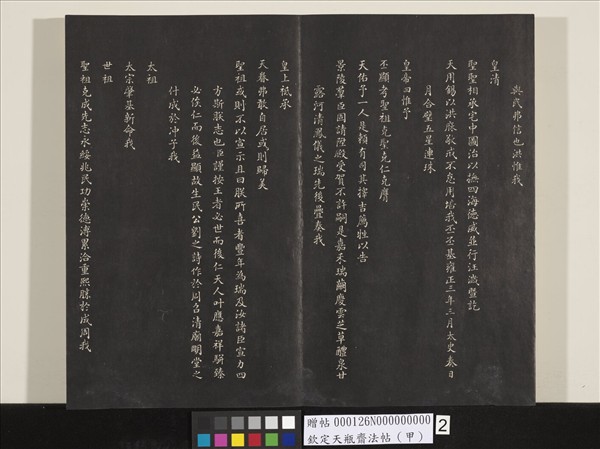 與民弗信也洪惟我
皇清
聖聖相承宅中國治以撫四海德威並行汪濊暨訖
天用錫以洪庥敬戒不怠用培我丕丕基雍正三年三月太史奏日
月合璧五星連珠
皇帝曰惟予
丕顯考聖祖克聖克仁克膺
天佑予一人是賴有司其擇吉薦牲以告
景陵羣臣固請陞殿受賀不許嗣是嘉禾瑞繭慶雲芝草醴泉甘
露河清鳳儀之瑞先後疊奏我
皇上祗承
天眷弗敢自居或則歸美
聖祖或則不以宣示且曰朕所喜者豐年為瑞及汝諸臣宣力四
方斯朕志也臣謹按王者必世而後仁天人叶應嘉祥駢臻
必俟仁而後益顯故生民公劉之詩作於周召清廟明堂之
什成於沖子我
太祖
太宗肇基新命我
世祖
聖祖克成先志永綏兆民功崇德溥累洽重熙媵於成周我
贈帖000126N000000000
欽定天瓶齋法帖(甲)
2